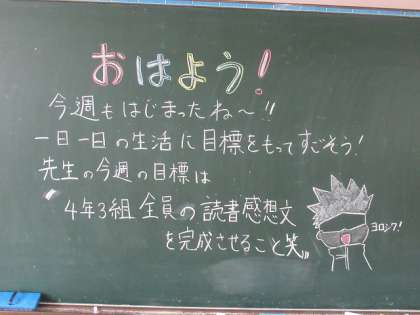 おはよう!
今週もはじまったね〜!!
一日一日の生活に目標をもってすごそう!
先生の今週の目標は
"4年3組 全員の読書感想文
を完成させること笑"
ヨロシク!